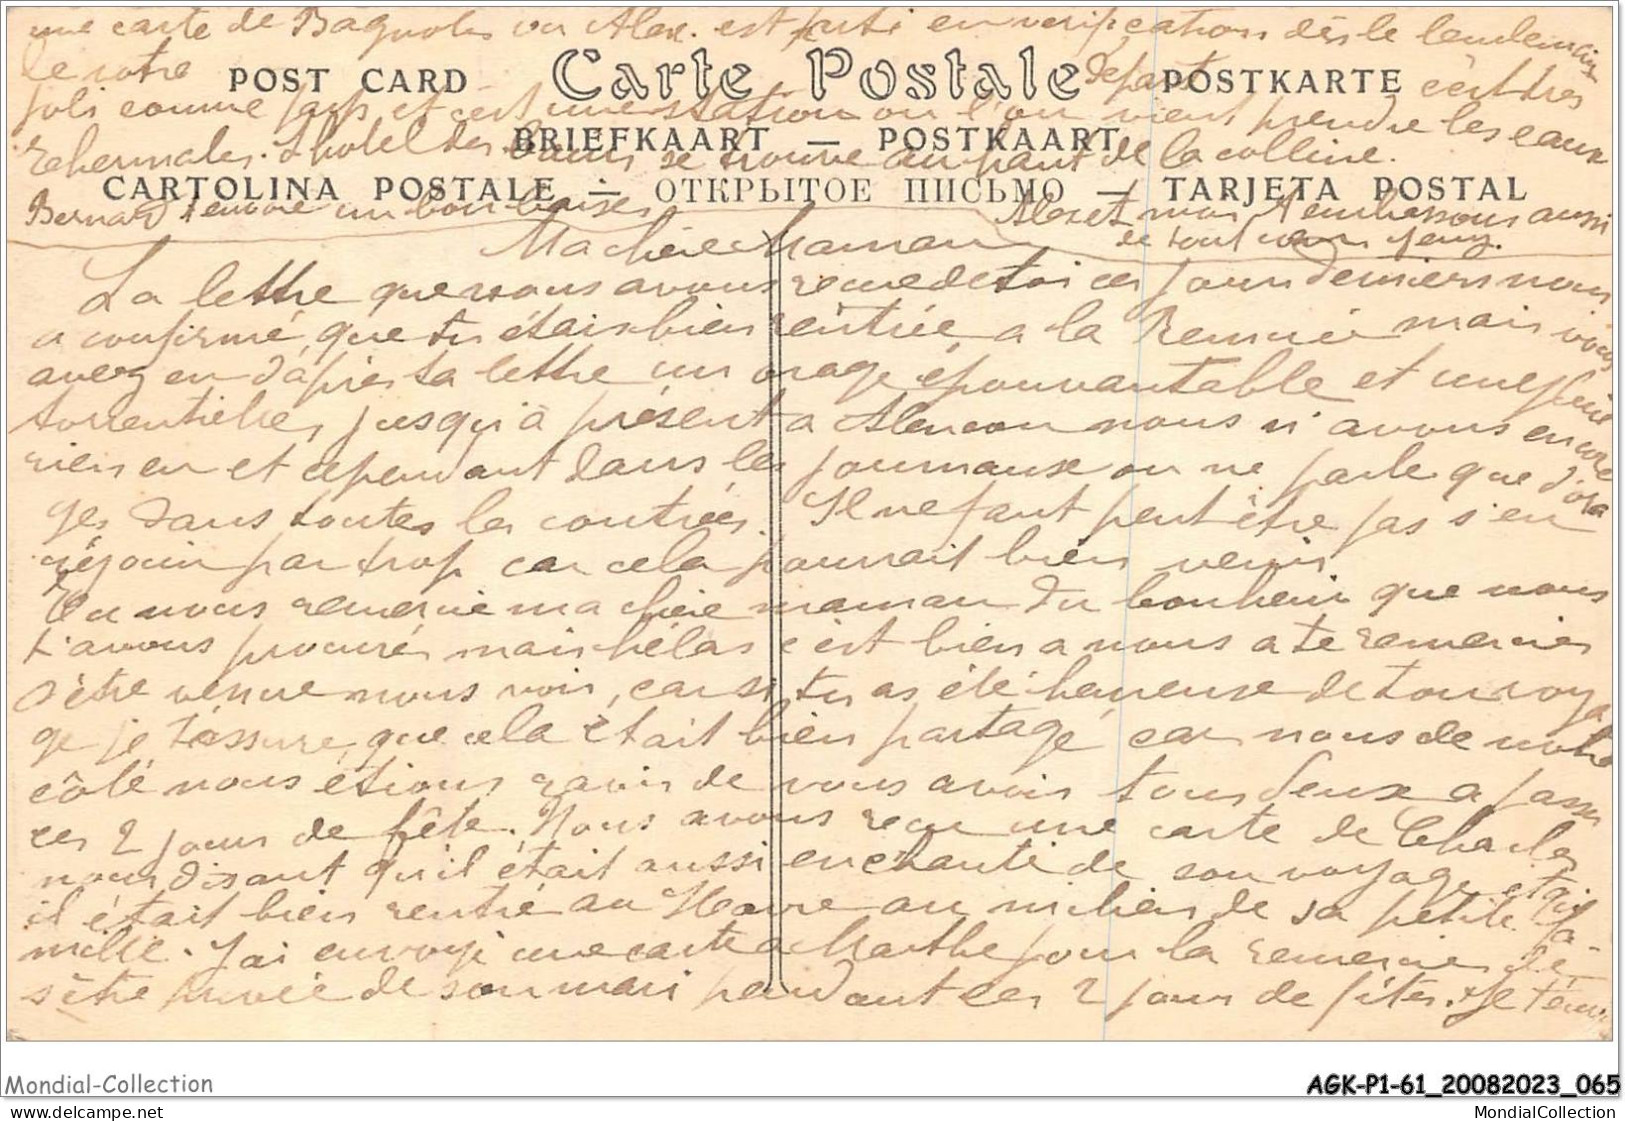 une carte de Bagnoles ou Alex. est parti en verifications dès le lendemain
de votre départ c'est très
POST CARD Carte Postale POSTKARTE
joli comme pays et c'est une station ou l'on vient prendre les eaux
BRIEFKAART — POSTKAART
thermales. L'hotel des Bains se trouve au haut de la colline.
CARTOLINA POSTALE — ОТКРЫТОЕ ПИСЬМО — TARJETA POSTAL
Bernard t'envoie un bon baiser
Alex et moi t'embrassons aussi
de tout coeur
Ma chère Maman
La lettre que nous avons reçue de toi ces jours derniers nous
a confirmé que tu étais bien rentrée a la mais vous
avez eu d'après ta lettre un orage épouvantable et une pluie
torrentielle, jusqu'à présent a Alencon nous n'avons encore
rien eu et cependant dans les journaux on ne parle que d'ora
ges dans toutes les contrées. Il ne faut peut être pas s'en
réjouir par trop car cela pourrait bien venir
Tu nous remercie ma chère maman du bonheur que nous
t'avons procuré mais hélas c'est bien a nous a te remercier
d'être venue nous voir, car si tu as été heureuse de ton voya
ge je t'assure que cela était bien partagé car nous de notre
côté nous étions ravis de vous avoir tous deux a passer
ces 2 jours de fête. Nous avons reçu une carte de Charles
nous disant qu'il était aussi enchanté de son voyage et qu'
il était bien rentré au Havre au milieu de sa petite fa-
mille. J'ai envoyé une carte a Marthe pour la remercier de
s'être privée de son mari pendant ces 2 jours de fêtes. Je t'envoie
Mondial-Collection
AGK-P1-61_20082023_065
www.delcampe.net
MondialCollection